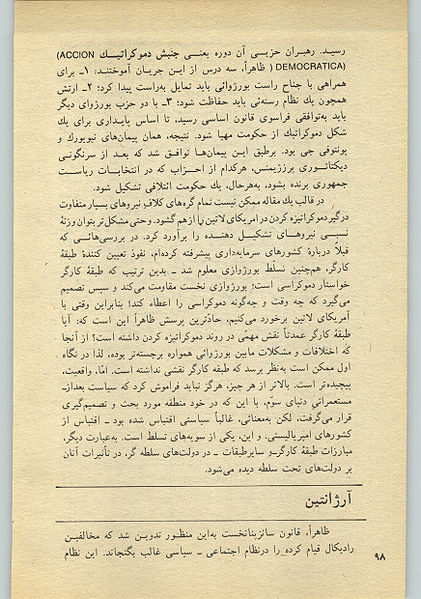 رسید. رهبران حزبی آن دوره یعنی جنبش دموکراتیك (ACCION
DEMOCRATICA) ظاهراً، سه درس از این جریان آموختند: ۱ـ برای
همراهی با جناح راست بورژوائی باید تمایل به‌راست پیدا کرد؛ ۲ـ ارتش
همچون یك نظام رسته‌ئی باید حفاظت شود؛ ۳ـ با دو حزب بورژوای دیگر
باید به‌توافقی فراسوی قانون اساسی رسید، تا اساس پایداری برای یك
شکل دموکراتیك از حکومت مهیا شود. نتیجه، همان پیمان‌های نیویورك و
پونتوفی جی بود. برطبق این پیمان‌ها توافق شد که بعد از سرنگونی
دیکتاتوری پرزیمنس، هرکدام از احزاب که در انتخابات ریاست
جمهوری برنده بشود، به‌هرحال، یك حکومت ائتلافی تشکیل شود.
در قالب یك مقاله ممکن نیست تمام گره‌های کلاف نیروهای بسیار متفاوت
درگیر دموکراتیزه کردن در امریکای لاتین را از هم گشود. وحتی مشکل‌تر بتوان وزنهٔ
نسبی نیروهای تشکیل دهنده را برآورد کرد. در بررسی‌هائی که
قبلاً دربارهٔ کشورهای سرمایه‌داری پیشرفته کرده‌ام، نفوذ تعیین کنندهٔ طبقهٔ
کارگر، هم‌چنین تسلّط بورژوازی معلوم شد ـ بدین ترتیب که طبقهٔ کارگر
خواستار دموکراسی است؛ بورژوازی نخست مقاومت می‌کند و سپس تصمیم
می‌گیرد که چه وقت و چه‌گونه دموکراسی را اعطاء کند؛ بنابراین وقتی با
آمریکای لاتین برخورد می‌کنیم، حادّترین پرسش ظاهراً این است که: آیا
طبقهٔ کارگر عمدتاً نقش مهمّی در روند دموکراتیزه کردن داشته است؟ از آنجا
که اختلافات و مشکلات مابین بورژوائی همواره برجسته‌تر بوده، لذا در نگاه
اول ممکن است به‌نظر برسد که طبقه کارگر نقشی نداشته است. امّا، واقعیت،
پیچیده‌تر است. بالاتر از هر چیز، هرگز نباید فراموش کرد که سیاست بعداز
مستعمراتیِ دنیای سوّم، با این که در خود منطقه مورد بحث و تصمیم‌گیری
قرار می‌گرفت، لکن به‌معنائی، غالباً سیاستی اقتباس شده بود ـ اقتباس از
کشورهای امپریالیستی. و این، یکی از سویه‌های تسلط است. به‌عبارت دیگر،
مبارزات طبقهٔ کارگر‌ـ‌و سایرطبقات ـ در دولت‌های سلطه گر، در تأثیرات آنان
بر دولت‌های تحت سلطه دیده می‌شود.
آرژانتین
ظاهراً، قانون سائزپنانخست به‌این منظور تدوین شد که مخالفین
رادیکال قیام کرده را درنظام اجتماعی ـ سیاسی غالب بگنجاند. این نظام
۹۸